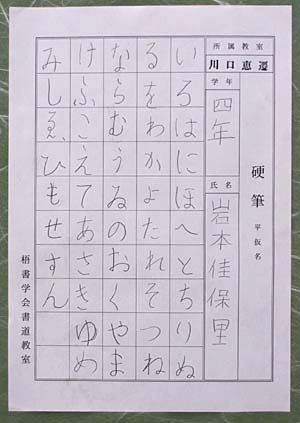 硬筆 平仮名
所属教室
川口恵遷
学年
四年
氏名
岩本佳保里
いろはにほへとちりぬ
るをわかよたれそつね
ならむうゐのおくやま
けふこえてあさきゆめ
みしゑひもせすん
梧書学会書道教室